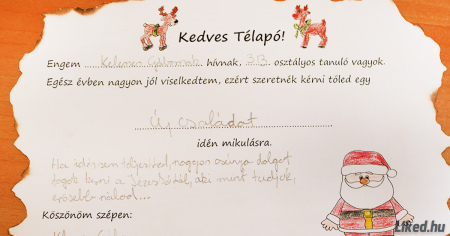 Kedves Télapó!
Engem Kelemen Gábornak hívnak, 3.B. osztályos tanuló vagyok.
Egész évben nagyon jól viselkedtem, ezért szeretnék kérni tőled egy
Új családot
idén mikulásra.
Ha kérésem teljesíted, nagyon csúnya dolgot
fogok kérni a Jézuskától, aki mint tudjuk,
erősebb nálad...
Köszönöm szépen:
Liked.hu